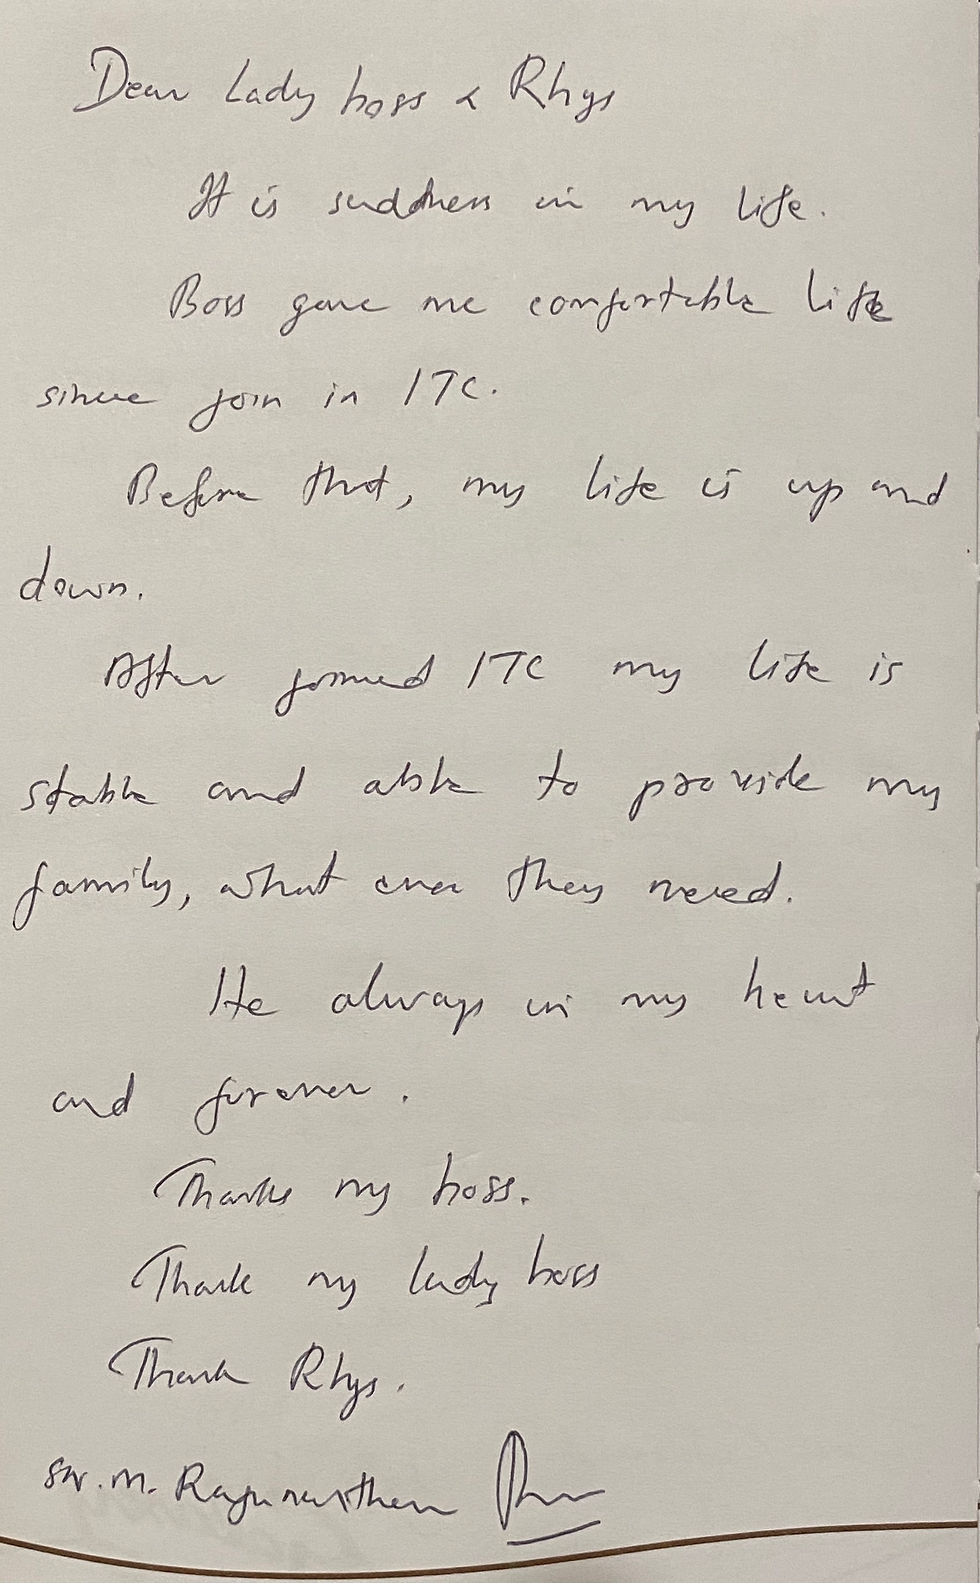 Dear Lady boss & Rhys
It is suddness in my life.
Boss gave me comfortable life
since join in ITC.
Before that, my life is up and
down.
After joined ITC my life is
stable and able to provide my
family, what ever they need.
He always in my heart
and forever.
Thanks my boss.
Thank my lady boss
Thank Rhys.
M.